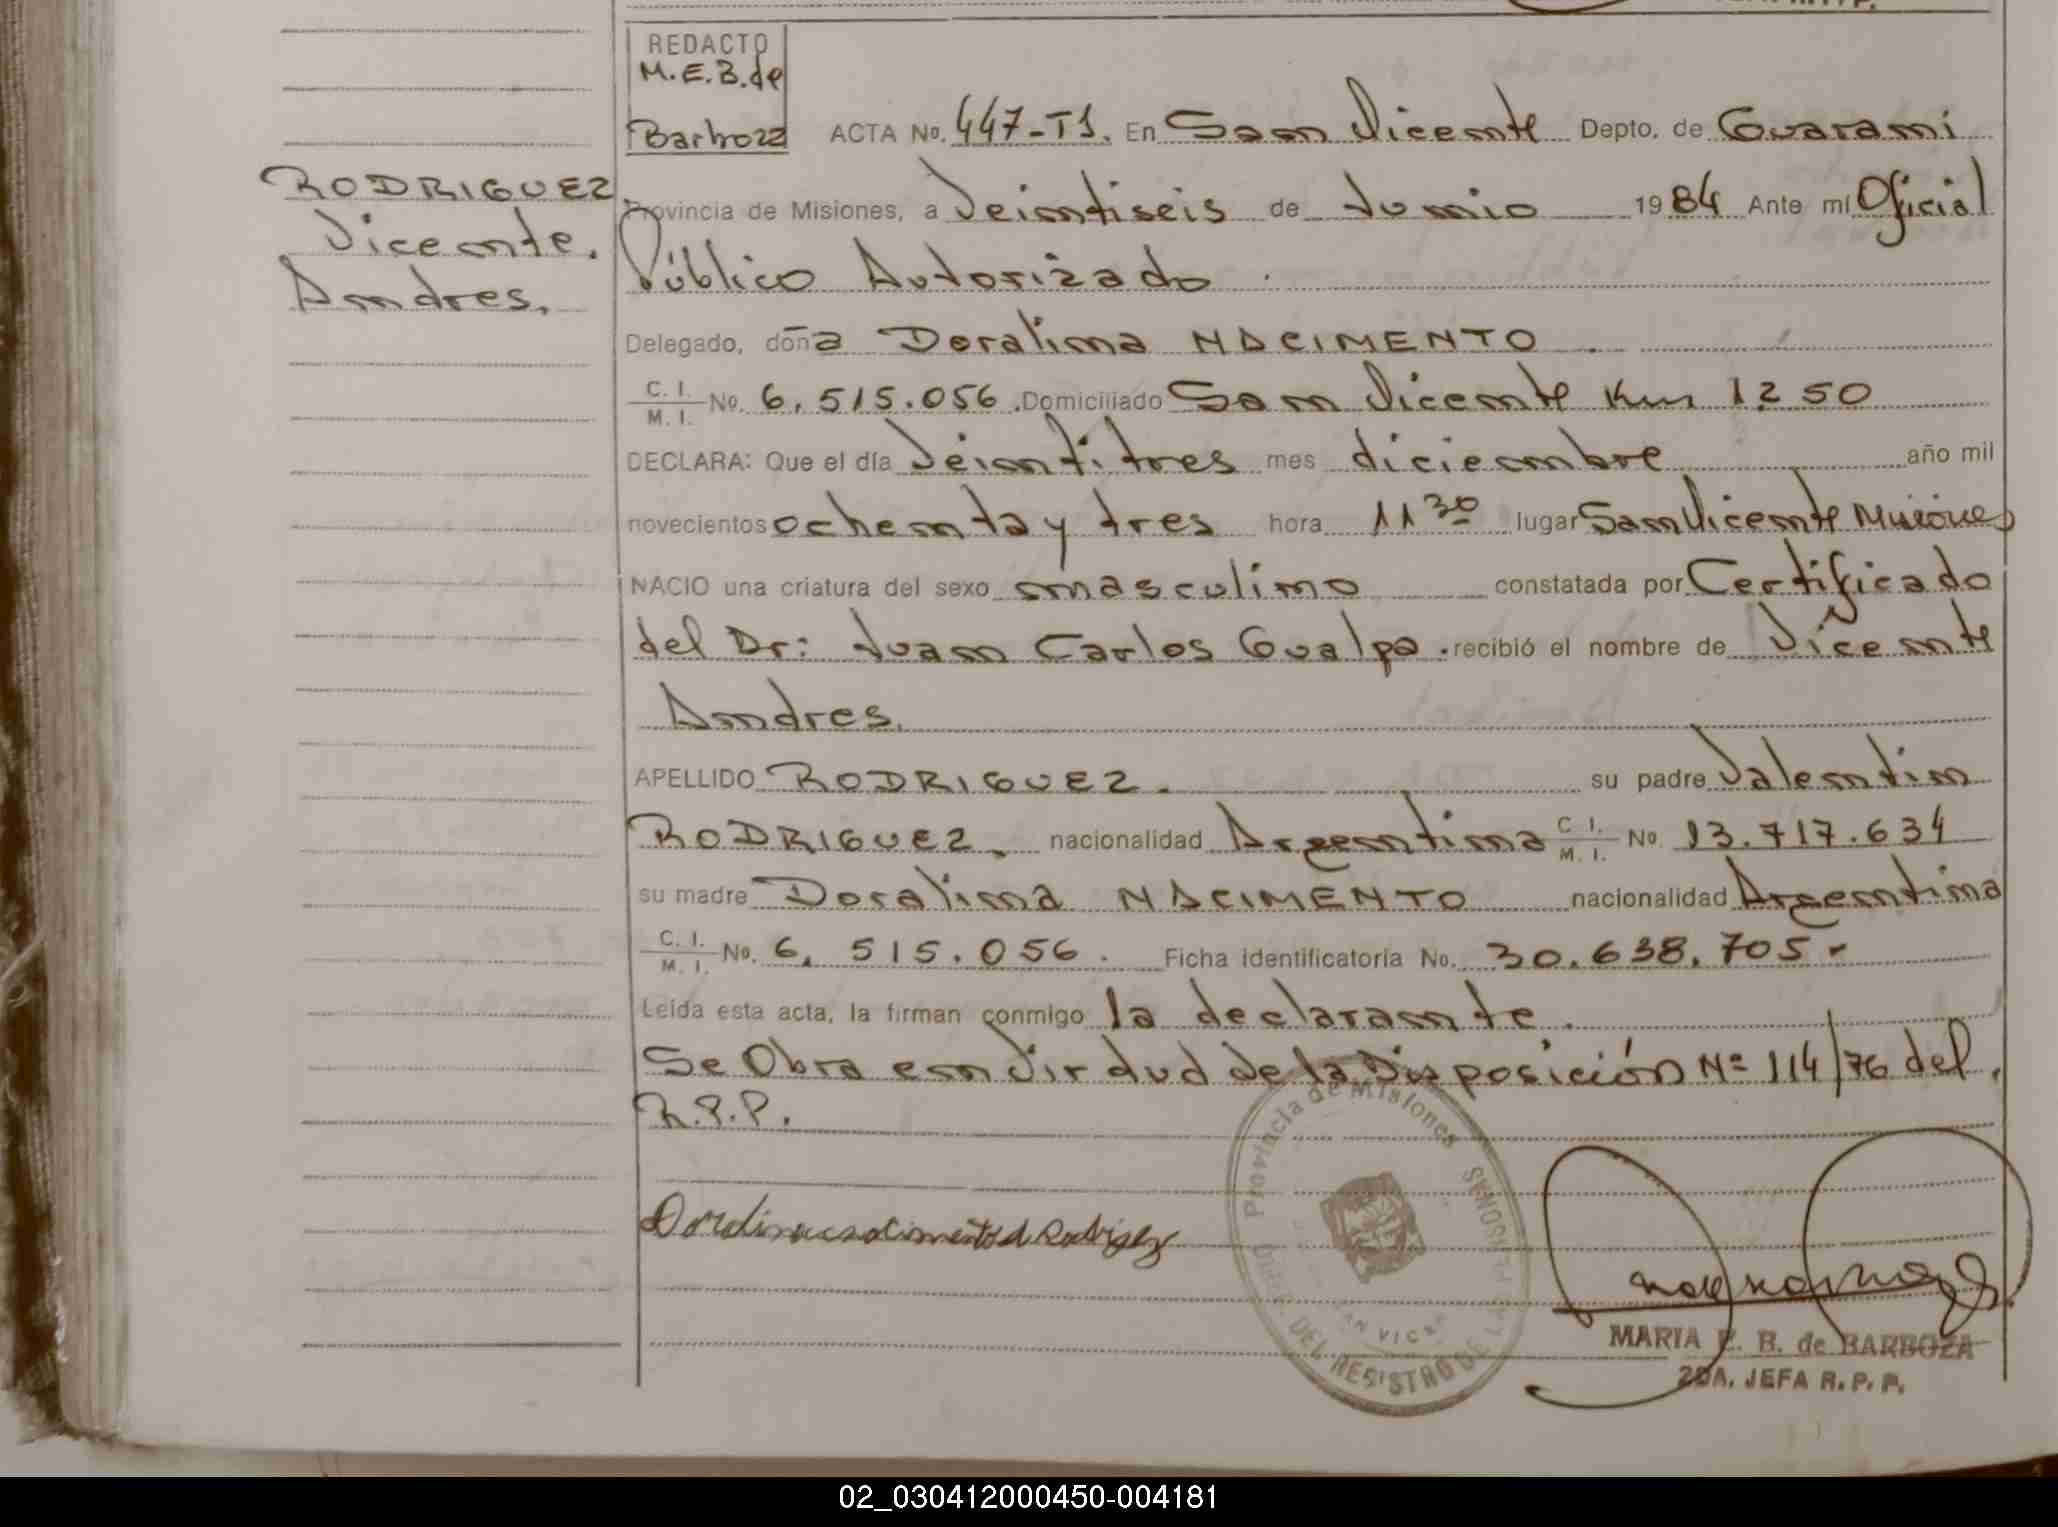 REDACTO
M.E.B. de
Barboza
ACTA No. 447-T1. En San Vicente Depto. de Guarani
RODRIGUEZ
Vicente.
Andres.
Provincia de Misiones, a Veintiseis de Junio 1984 Ante mi Oficial
Público Autorizado
Delegado, doña Doralina NACIMENTO
C. I. M. I. No. 6.515.056. Domiciliado San Vicente Km 1250
DECLARA: Que el día Veintitres mes diciembre año mil
novecientos ochenta y tres hora 11 30 lugar San Vicente Misiones
NACIO una criatura del sexo masculino constatada por Certificado
del Dr: Juan Carlos Gualpa. recibió el nombre de Vicente
Andres.
APELLIDO RODRIGUEZ. su padre Valentin
RODRIGUEZ. nacionalidad Argentina C. I. M. I. No. 13.717.634
su madre Doralina NACIMENTO nacionalidad Argentina
C. I. M. I. No. 6. 515.056. Ficha identificatoria No. 30.638.705-
Leída esta acta, la firman conmigo la declarante.
Se Obra en Virdud de la Disposición Nº 114/76 del
R.P.P.
Provincia de Misiones
DEL REGISTRO DE LAS PERSONAS
MARIA E. B. de BARBOZA
2DA. JEFA R. P. P.
02_030412000450-004181